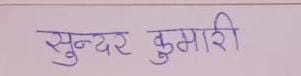 सुन्दर कुमारी